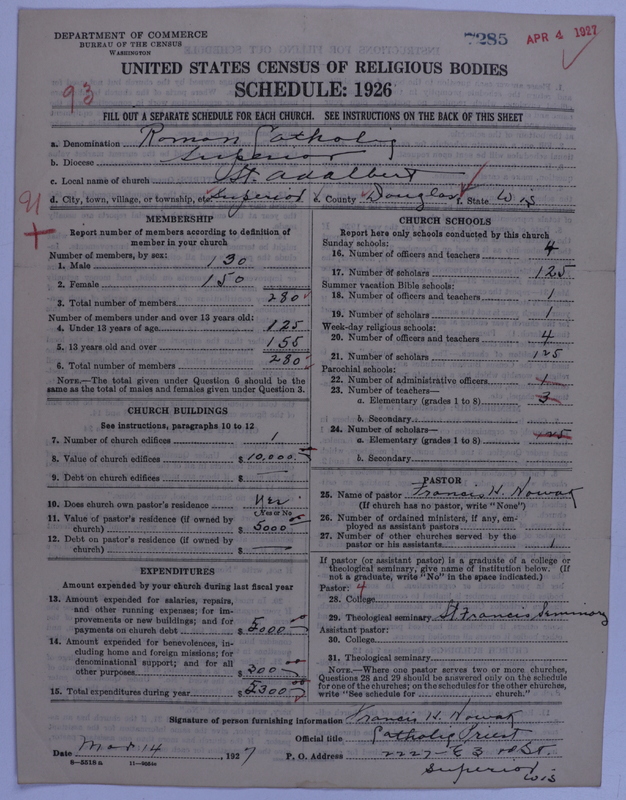 DEPARTMENT OF COMMERCE
BUREAU OF THE CENSUS
WASHINGTON
7285
APR 4 1927
UNITED STATES CENSUS OF RELIGIOUS BODIES
SCHEDULE: 1926
93
FILL OUT A SEPARATE SCHEDULE FOR EACH CHURCH. SEE INSTRUCTIONS ON THE BACK OF THIS SHEET
a. Denomination Roman Catholic
b. Diocese Superior
c. Local name of church St. Adalbert
d. City, town, village, or township, etc. Superior e. County Douglas f. State Wis
91
MEMBERSHIP
Report number of members according to definition of
member in your church
Number of members, by sex:
1. Male 130
2. Female 150
3. Total number of members 280
Number of members under and over 13 years old:
4. Under 13 years of age 125
5. 13 years old and over 155
6. Total number of members 280
NOTE.—The total given under Question 6 should be the
same as the total of males and females given under Question 3.
CHURCH BUILDINGS
See instructions, paragraphs 10 to 12
7. Number of church edifices 1
8. Value of church edifices $ 10,000.
9. Debt on church edifices $ —
10. Does church own pastor's residence Yes
(Yes or No)
11. Value of pastor's residence (if owned by
church) $ 5000 00
12. Debt on pastor's residence (if owned by
church) $ —
EXPENDITURES
Amount expended by your church during last fiscal year
13. Amount expended for salaries, repairs,
and other running expenses; for im-
provements or new buildings; and for
payments on church debt $ 5000
14. Amount expended for benevolences, in-
cluding home and foreign missions; for
denominational support; and for all
other purposes $ 300 00
15. Total expenditures during year $ 5300 00
CHURCH SCHOOLS
Report here only schools conducted by this church
Sunday schools:
16. Number of officers and teachers 4
17. Number of scholars 125
Summer vacation Bible schools:
18. Number of officers and teachers 1
19. Number of scholars 1
Week-day religious schools:
20. Number of officers and teachers 4
21. Number of scholars 125
Parochial schools:
22. Number of administrative officers 1
23. Number of teachers—
a. Elementary (grades 1 to 8) 3
b. Secondary
24. Number of scholars—
a. Elementary (grades 1 to 8) 125
b. Secondary
PASTOR
25. Name of pastor Francis W. Nowak
(If church has no pastor, write "None")
26. Number of ordained ministers, if any, em-
ployed as assistant pastors
27. Number of other churches served by the
pastor or his assistants 1
If pastor (or assistant pastor) is a graduate of a college or
theological seminary, give name of institution below. (If
not a graduate, write "No" in the space indicated.)
Pastor: 4
28. College
29. Theological seminary St Francis Seminary
Assistant pastor:
30. College
31. Theological seminary
NOTE.—Where one pastor serves two or more churches,
Questions 28 and 29 should be answered only on the schedule
for one of the churches; on the schedules for the other churches,
write "See schedule for church."
Signature of person furnishing information Francis W. Nowak
Official title Catholic Priest
Date Mar 14, 1927 P. O. Address 2227 E 3rd St.
8—5518 a
Superior Wis